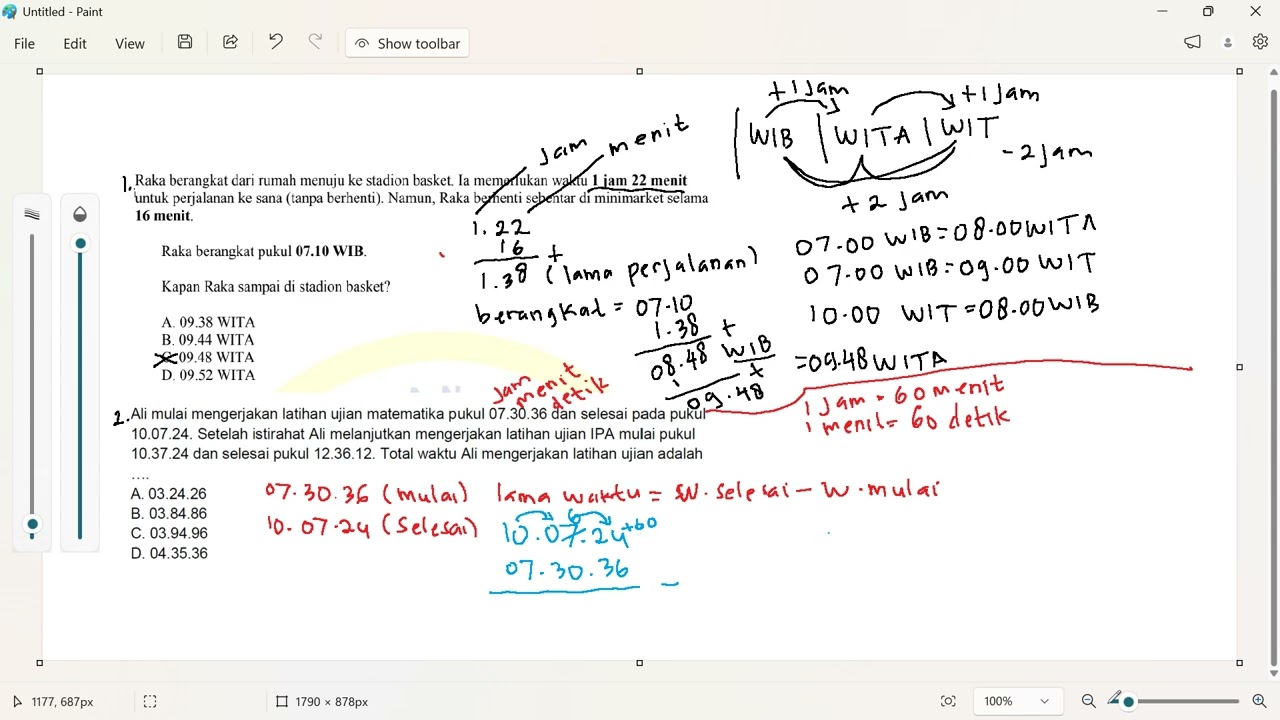 Untitled - Paint
File Edit View Show toolbar
+1 Jam
+1 Jam
| WIB | WITA | WIT
- 2 Jam
+ 2 Jam
Jam
menit
1. Raka berangkat dari rumah menuju ke stadion basket. Ia memerlukan waktu 1 jam 22 menit
untuk perjalanan ke sana (tanpa berhenti). Namun, Raka berhenti sebentar di minimarket selama
16 menit.
Raka berangkat pukul 07.10 WIB.
Kapan Raka sampai di stadion basket?
A. 09.38 WITA
B. 09.44 WITA
C. 09.48 WITA
D. 09.52 WITA
1. 22
16 +
1.38 (lama perjalanan)
berangkat = 07.10
1.38 +
08.48 WIB = 09.48 WITA
1 +
09.48
07.00 WIB = 08.00 WITA
07.00 WIB = 09.00 WIT
10.00 WIT = 08.00 WIB
1 Jam = 60 menit
1 menit = 60 detik
Jam
menit
detik
2. Ali mulai mengerjakan latihan ujian matematika pukul 07.30.36 dan selesai pada pukul
10.07.24. Setelah istirahat Ali melanjutkan mengerjakan latihan ujian IPA mulai pukul
10.37.24 dan selesai pukul 12.36.12. Total waktu Ali mengerjakan latihan ujian adalah
....
A. 03.24.26
B. 03.84.86
C. 03.94.96
D. 04.35.36
07.30.36 (mulai)
10.07.24 (selesai)
lama waktu = W.selesai - W.mulai
6
10.07.24 +60
07.30.36
-
1177, 687px
1790 × 878px
100%